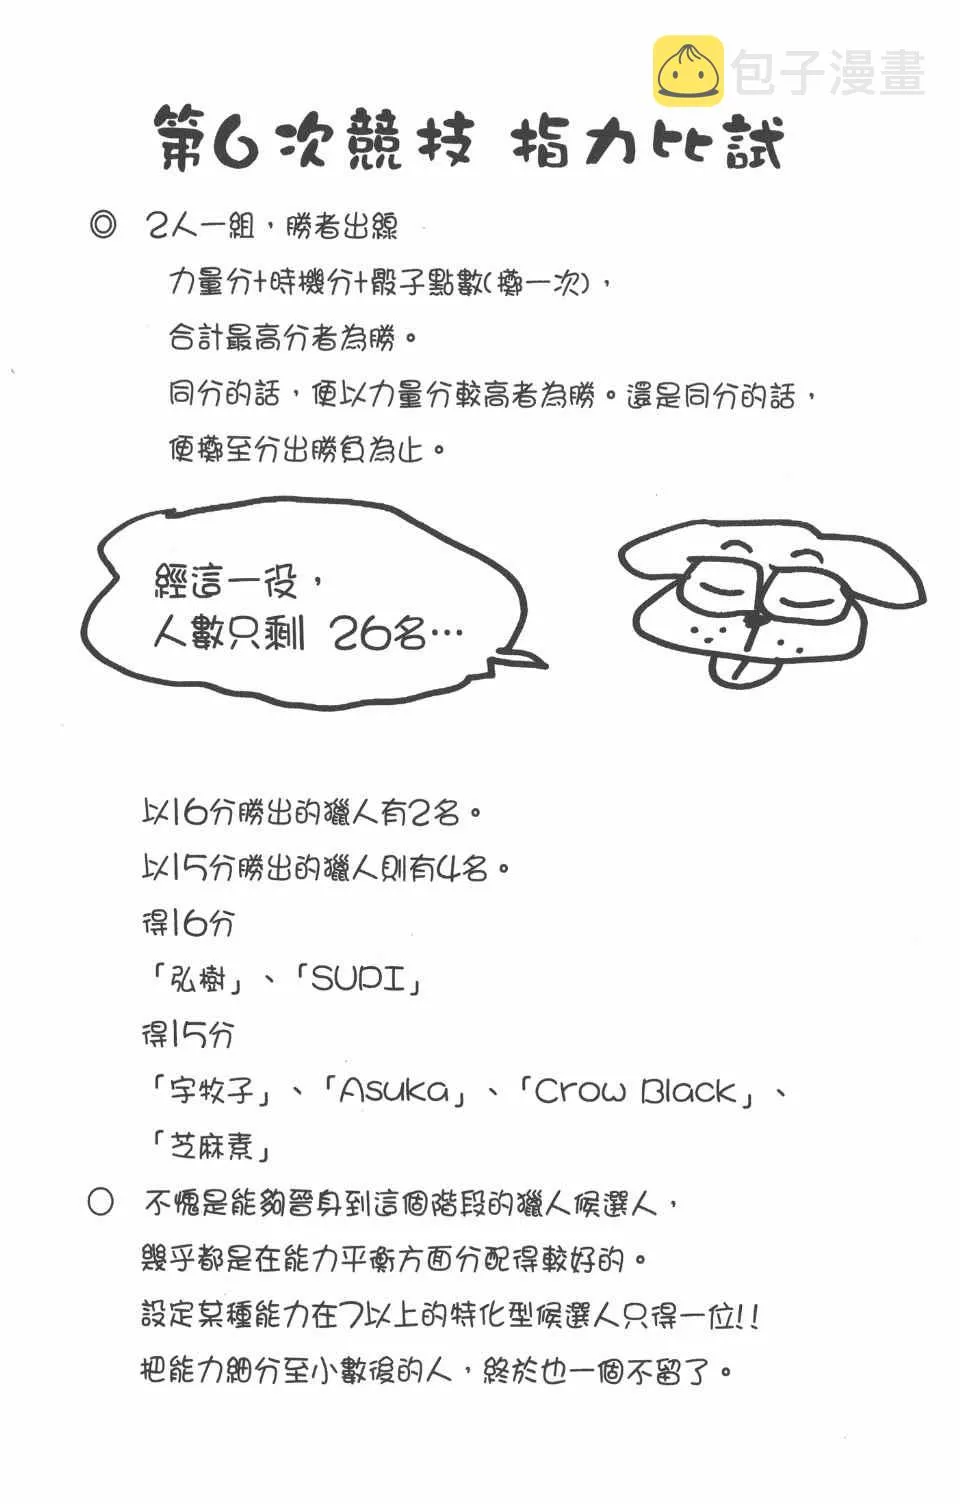 包子漫畫
第6次競技 指力比試
◎ 2人一組，勝者出線
力量分+時機分+骰子點數(擲一次)，
合計最高分者為勝。
同分的話，便以力量分較高者為勝。還是同分的話，
便擲至分出勝負為止。
經這一役，
人數只剩 26名…
以16分勝出的獵人有2名。
以15分勝出的獵人則有4名。
得16分
「弘樹」、「SUPI」
得15分
「宇牧子」、「Asuka」、「Crow Black」、
「芝麻素」
○ 不愧是能夠晉身到這個階段的獵人候選人，
幾乎都是在能力平衡方面分配得較好的。
設定某種能力在7以上的特化型候選人只得一位!!
把能力細分至小數後的人，終於也一個不留了。